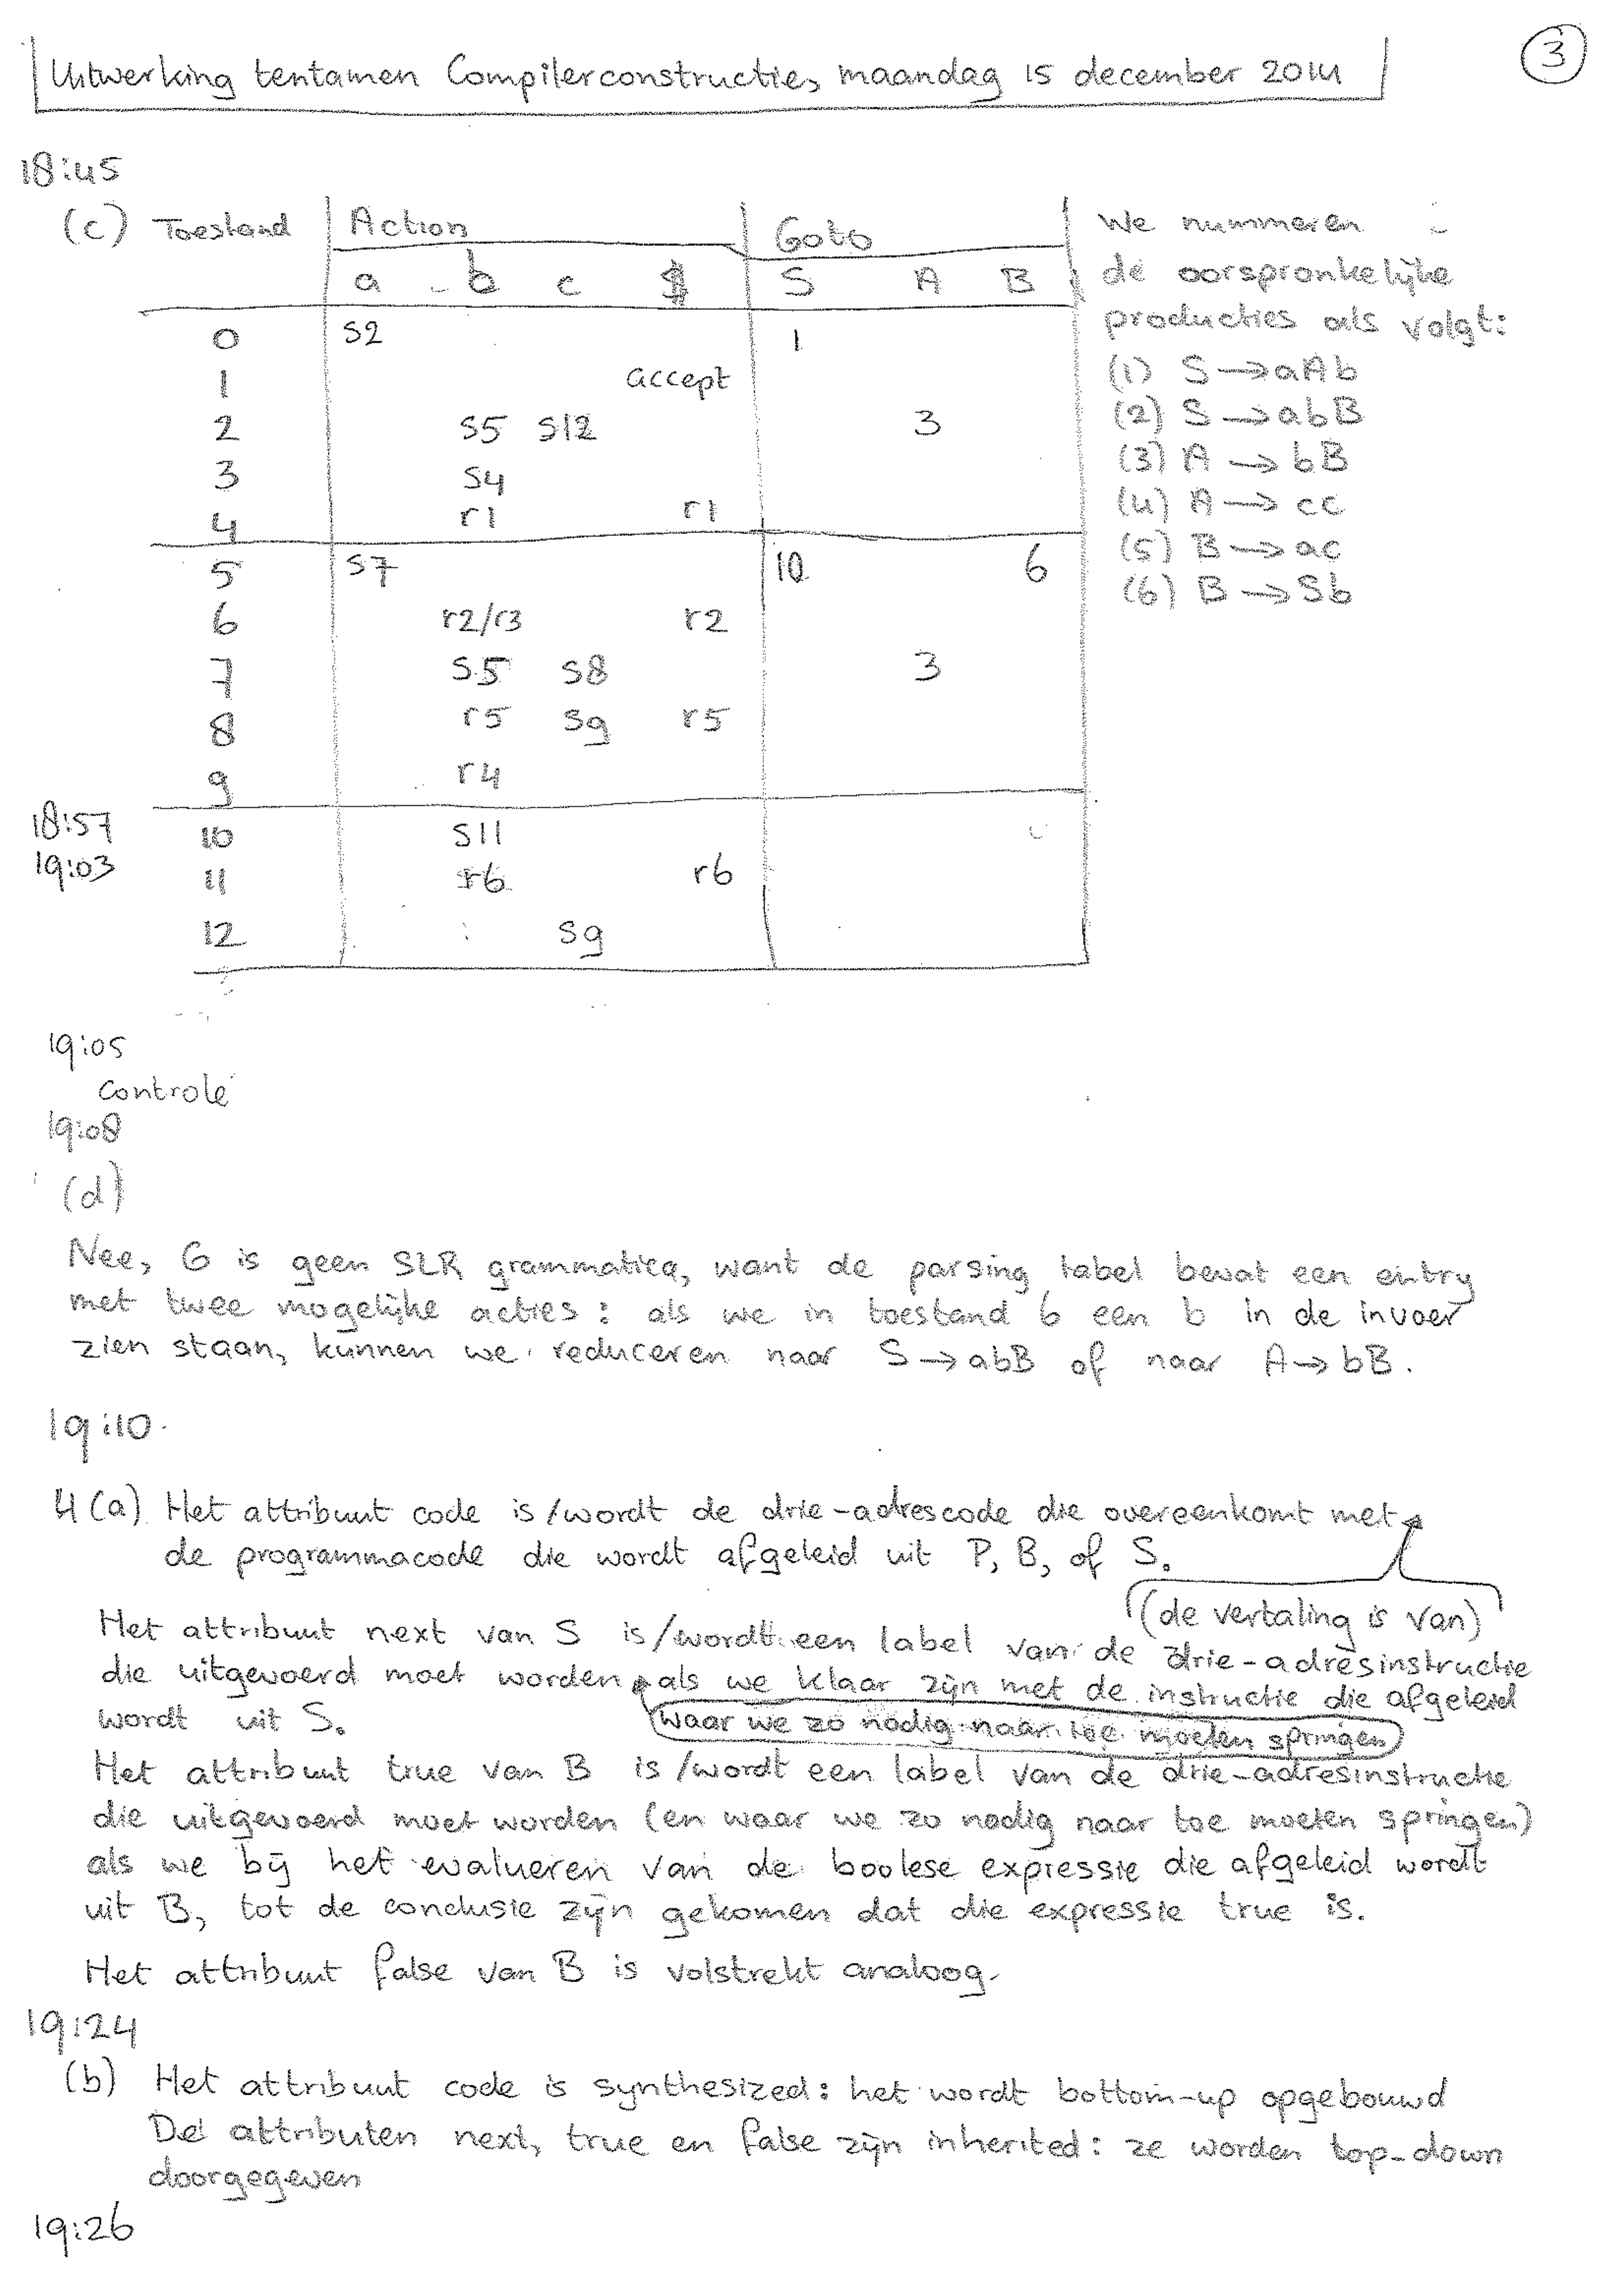 Uitwerking tentamen Compilerconstructie, maandag 15 december 2014
3
18:45
(c) Toestand Action Goto
a b c $ S A B
0 s2 1
1 accept
2 s5 s12 3
3 s4
4 r1 r1
5 s7 10 6
6 r2/r3 r2
7 s5 s8 3
8 r5 s9 r5
9 r4
18:57
10 s11
19:03
11 r6 r6
12 s9
We nummeren
de oorspronkelijke
producties als volgt:
(1) S → aAb
(2) S → abB
(3) A → bB
(4) A → cc
(5) B → ac
(6) B → Sb
19:05
Controle
19:08
(d)
Nee, G is geen SLR grammatica, want de parsing tabel bevat een entry
met twee mogelijke acties: als we in toestand 6 een b in de invoer
zien staan, kunnen we reduceren naar S → abB of naar A → bB.
19:10
4 (a) Het attribuut code is/wordt de drie-adrescode die overeenkomt met
de programmacode die wordt afgeleid uit P, B, of S.
(de vertaling is van)
Het attribuut next van S is/wordt een label van de drie-adresinstructie
die uitgevoerd moet worden als we klaar zijn met de instructie die afgeleid
wordt uit S.
waar we zo nodig naar toe moeten springen
Het attribuut true van B is/wordt een label van de drie-adresinstructie
die uitgevoerd moet worden (en waar we zo nodig naar toe moeten springen)
als we bij het evalueren van de boolese expressie die afgeleid wordt
uit B, tot de conclusie zijn gekomen dat die expressie true is.
Het attribuut false van B is volstrekt analoog.
19:24
(b) Het attribuut code is synthesized: het wordt bottom-up opgebouwd
De attributen next, true en false zijn inherited: ze worden top-down
doorgegeven
19:26